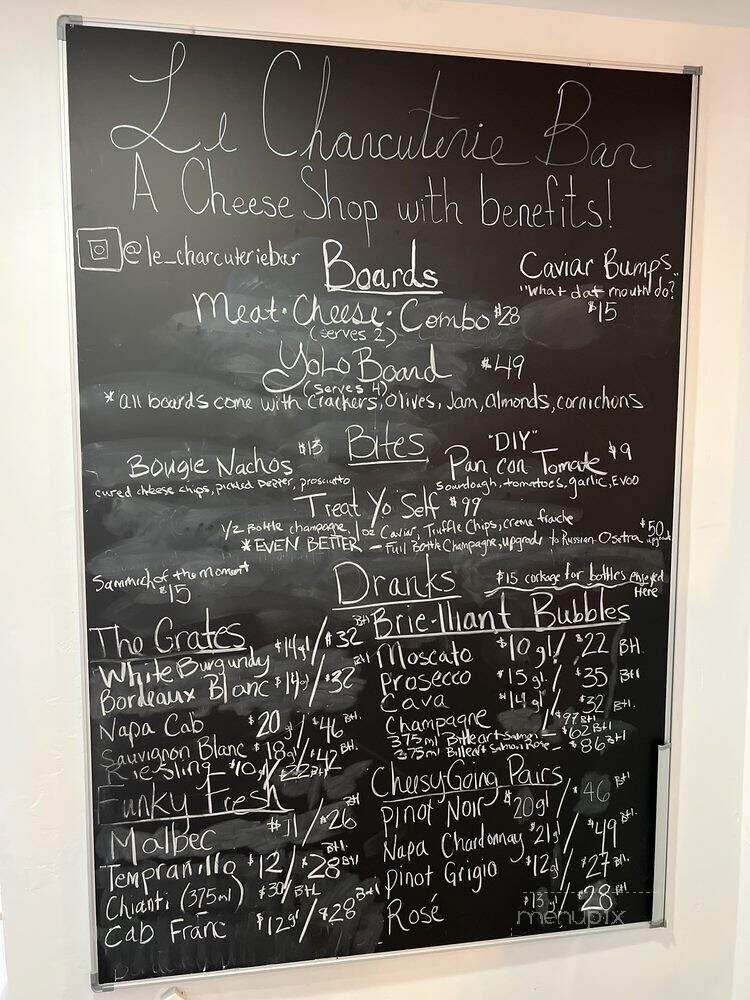 Le Charcuterie Bar
A Cheese Shop with benefits!
@le_charcuteriebar
Boards
Caviar Bumps
"What dat mouth do?"
$15
Meat·Cheese·Combo $28
(serves 2)
YoLo Board $49
(serves 4)
*all boards come with Crackers, olives, Jam, almonds, cornichons
Bites
Bougie Nachos $13
cured cheese chips, pickled pepper, prosciutto
"DIY"
Pan con Tomate $9
Sourdough, tomatoes, garlic, EVOO
Treat Yo Self $99
1/2 Bottle champagne, 1 oz Caviar, Truffle Chips, creme fraiche
*EVEN BETTER - Full Bottle Champagne, upgrade to Russian Osetra $50 upgrade
Sammich of the Moment
$15
Dranks
$15 corkage for bottles enjoyed
Here
The Grates
White Burgundy $14gl/$32 Btl
Bordeaux Blanc $14gl/$32 Btl
Napa Cab $20gl/$46 Btl.
Sauvignon Blanc $18gl/$42 Btl.
Riesling - $10gl/$22 Btl
Funky Fresh
Malbec $11/$26 Btl
Tempranillo $12/$28 Btl.
Chianti (375ml) $30/Btl
Cab Franc $12gl/$28 Btl
Brie-lliant Bubbles
Moscato $10gl/$22 Btl.
Prosecco $15gl/$35 Btl
Cava $14gl/$32 Btl.
Champagne /$97 Btl
375ml Billecart Salmon - $62 Btl
375ml Billecart Salmon Rose - $86 Btl
CheesyGoing Pairs
Pinot Noir $20gl/$46 Btl
Napa Chardonnay $21gl/$49 Btl.
Pinot Grigio $12gl/$27 Btl.
Rosé $13gl/$28 Btl
menupix